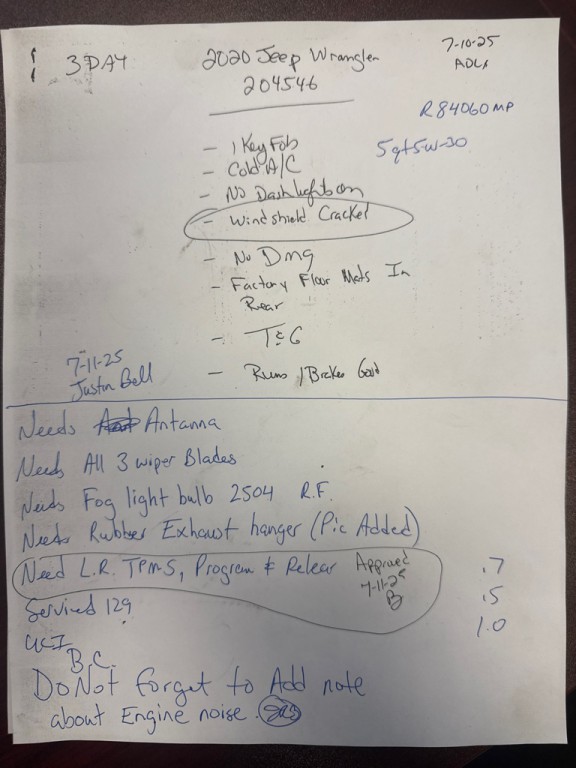 3 DAY
2020 Jeep Wrangler
204546
7-10-25
R84060MP
5qt 5W-30
- 1 Key Fob
- Cold A/C
- No Dash lights on
- Windshield Cracked
- No Dmg
- Factory Floor Mats In
Rear
- T&G
- Runs / Brakes Good
7-11-25
Justin Bell
Needs Antanna
Needs All 3 wiper Blades
Needs Fog light bulb 2504 R.F.
Needs Rubber Exhaust hanger (Pic Added)
Need L.R. TPMS, Program & Relear Approved
7-11-25
B
.7
Serviced 129
.5
UCI
1.0
B.C.
Do Not forget to Add note
about Engine noise.